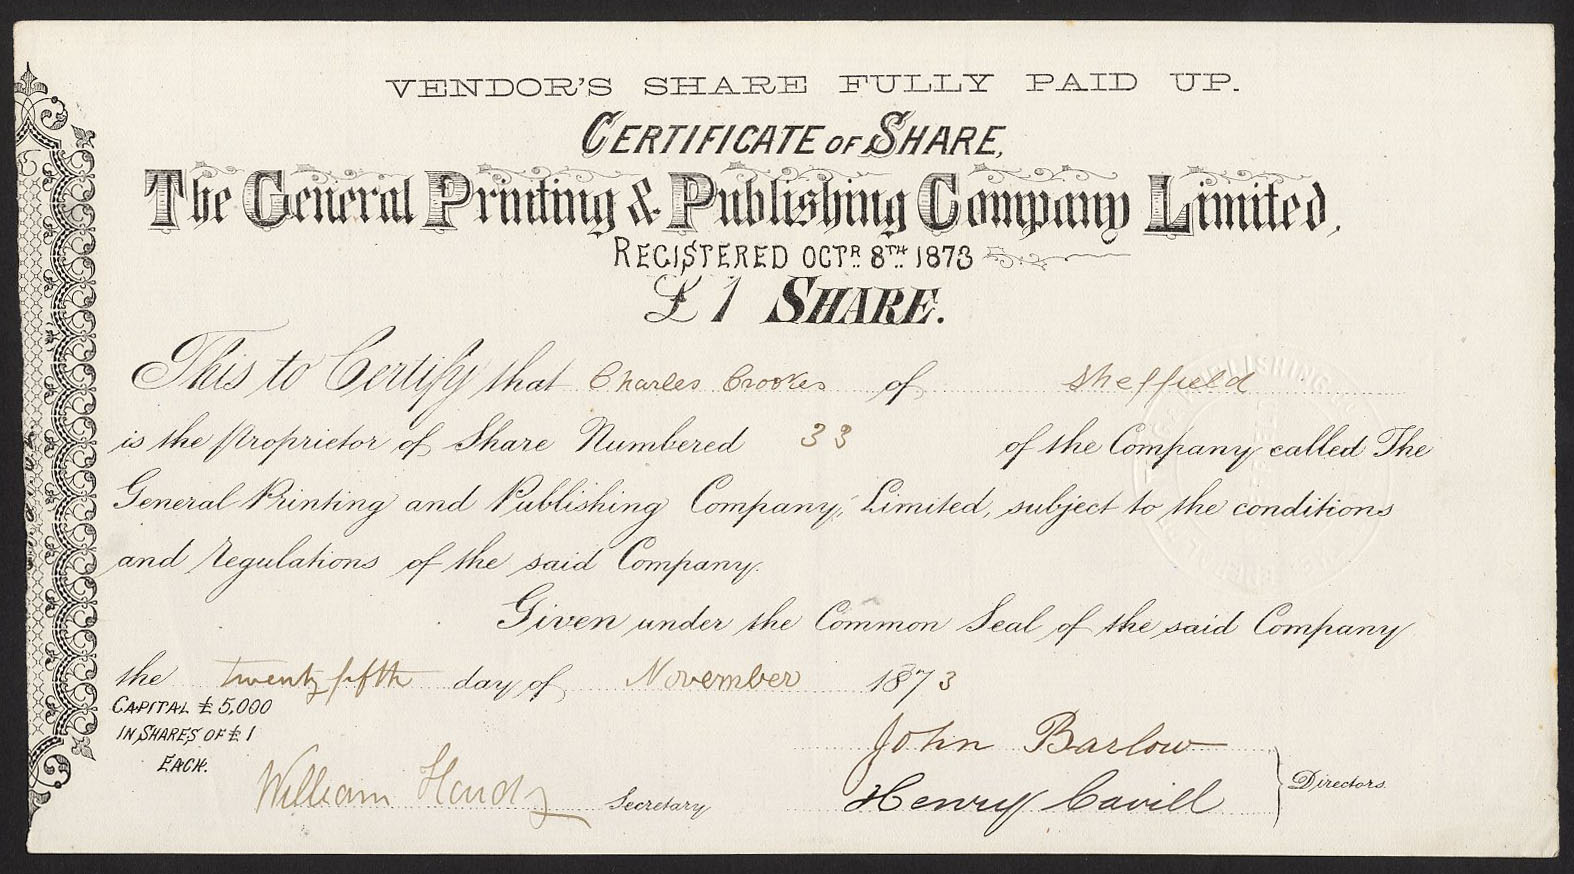 VENDOR'S SHARE FULLY PAID UP.
CERTIFICATE OF SHARE,
The General Printing & Publishing Company Limited,
REGISTERED OCTR 8TH 1873
£1 SHARE.
This to Certify that Charles Crookes of Sheffield
is the Proprietor of Share Numbered 33 of the Company called The
General Printing and Publishing Company, Limited, subject to the conditions
and regulations of the said Company.
Given under the Common Seal of the said Company
the twenty fifth day of November 1873
CAPITAL £5,000
IN SHARES OF £1
EACH.
John Barlow
William Hardy Secretary
Henry Cavill
Directors.